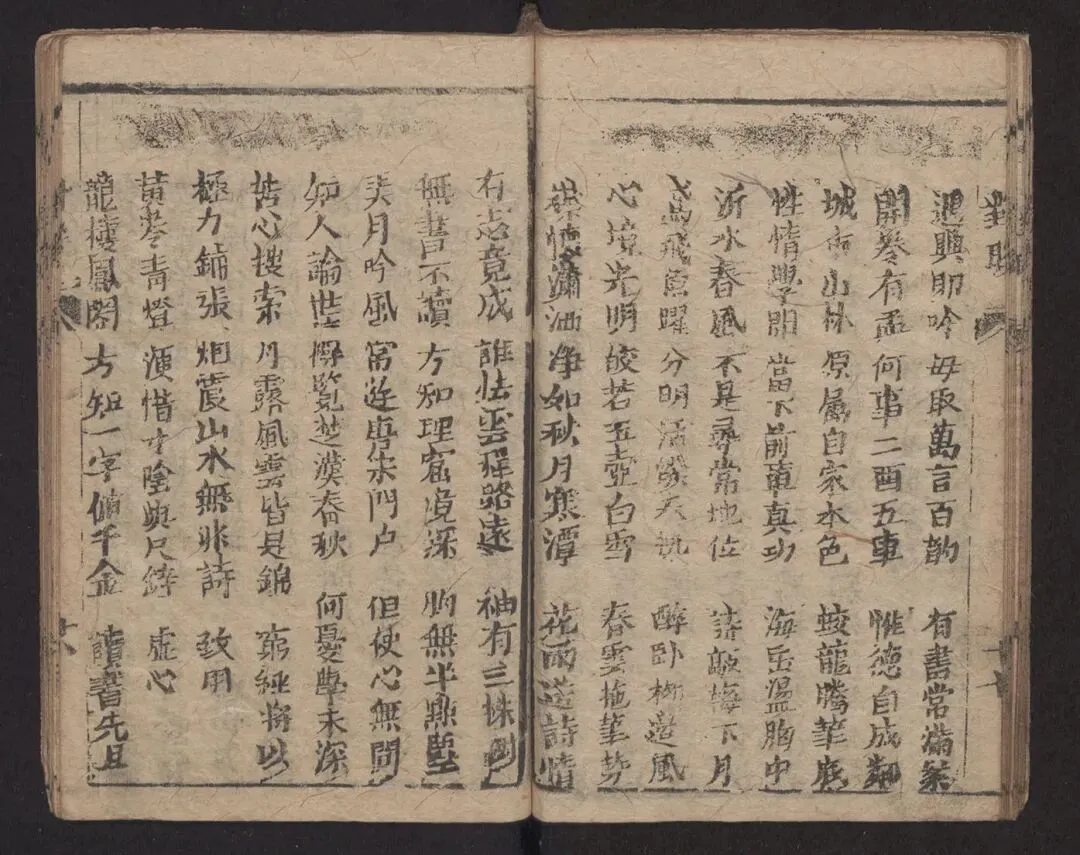 對聯
遇興即吟 毋取萬言百韵 有書常滿案
開卷有益 何事二酉五車 惟德自成鄰
城市山林 原屬自家本色 蛟龍騰筆底
性情學問 當下前車真功 海岳溫胸中
沂水春風 不是尋常地位 詩敲梅下月
鳶飛魚躍 分明活潑天机 醉卧柳邊風
心境光明 皎若玉壺白雪 春雲拖筆勢
襟懷瀟洒 净如秋月寒潭 花雨送詩情
有志竟成 誰怯雲程路遠 袖有三株
無書不讀 方知理窟境深 胸無半點塵
美月吟風 常遊唐宋門户 但使心無間
知人論世 博覧楚漢春秋 何憂學未深
苦心搜索 月露風雲皆是錦 窮經將以
極力鋪張 烟霞山水無非詩 致用
黃卷青燈 須惜寸陰與尺錚 虛心
龍樓鳳閣 方知一字值千金 讀書先且
十七
十八